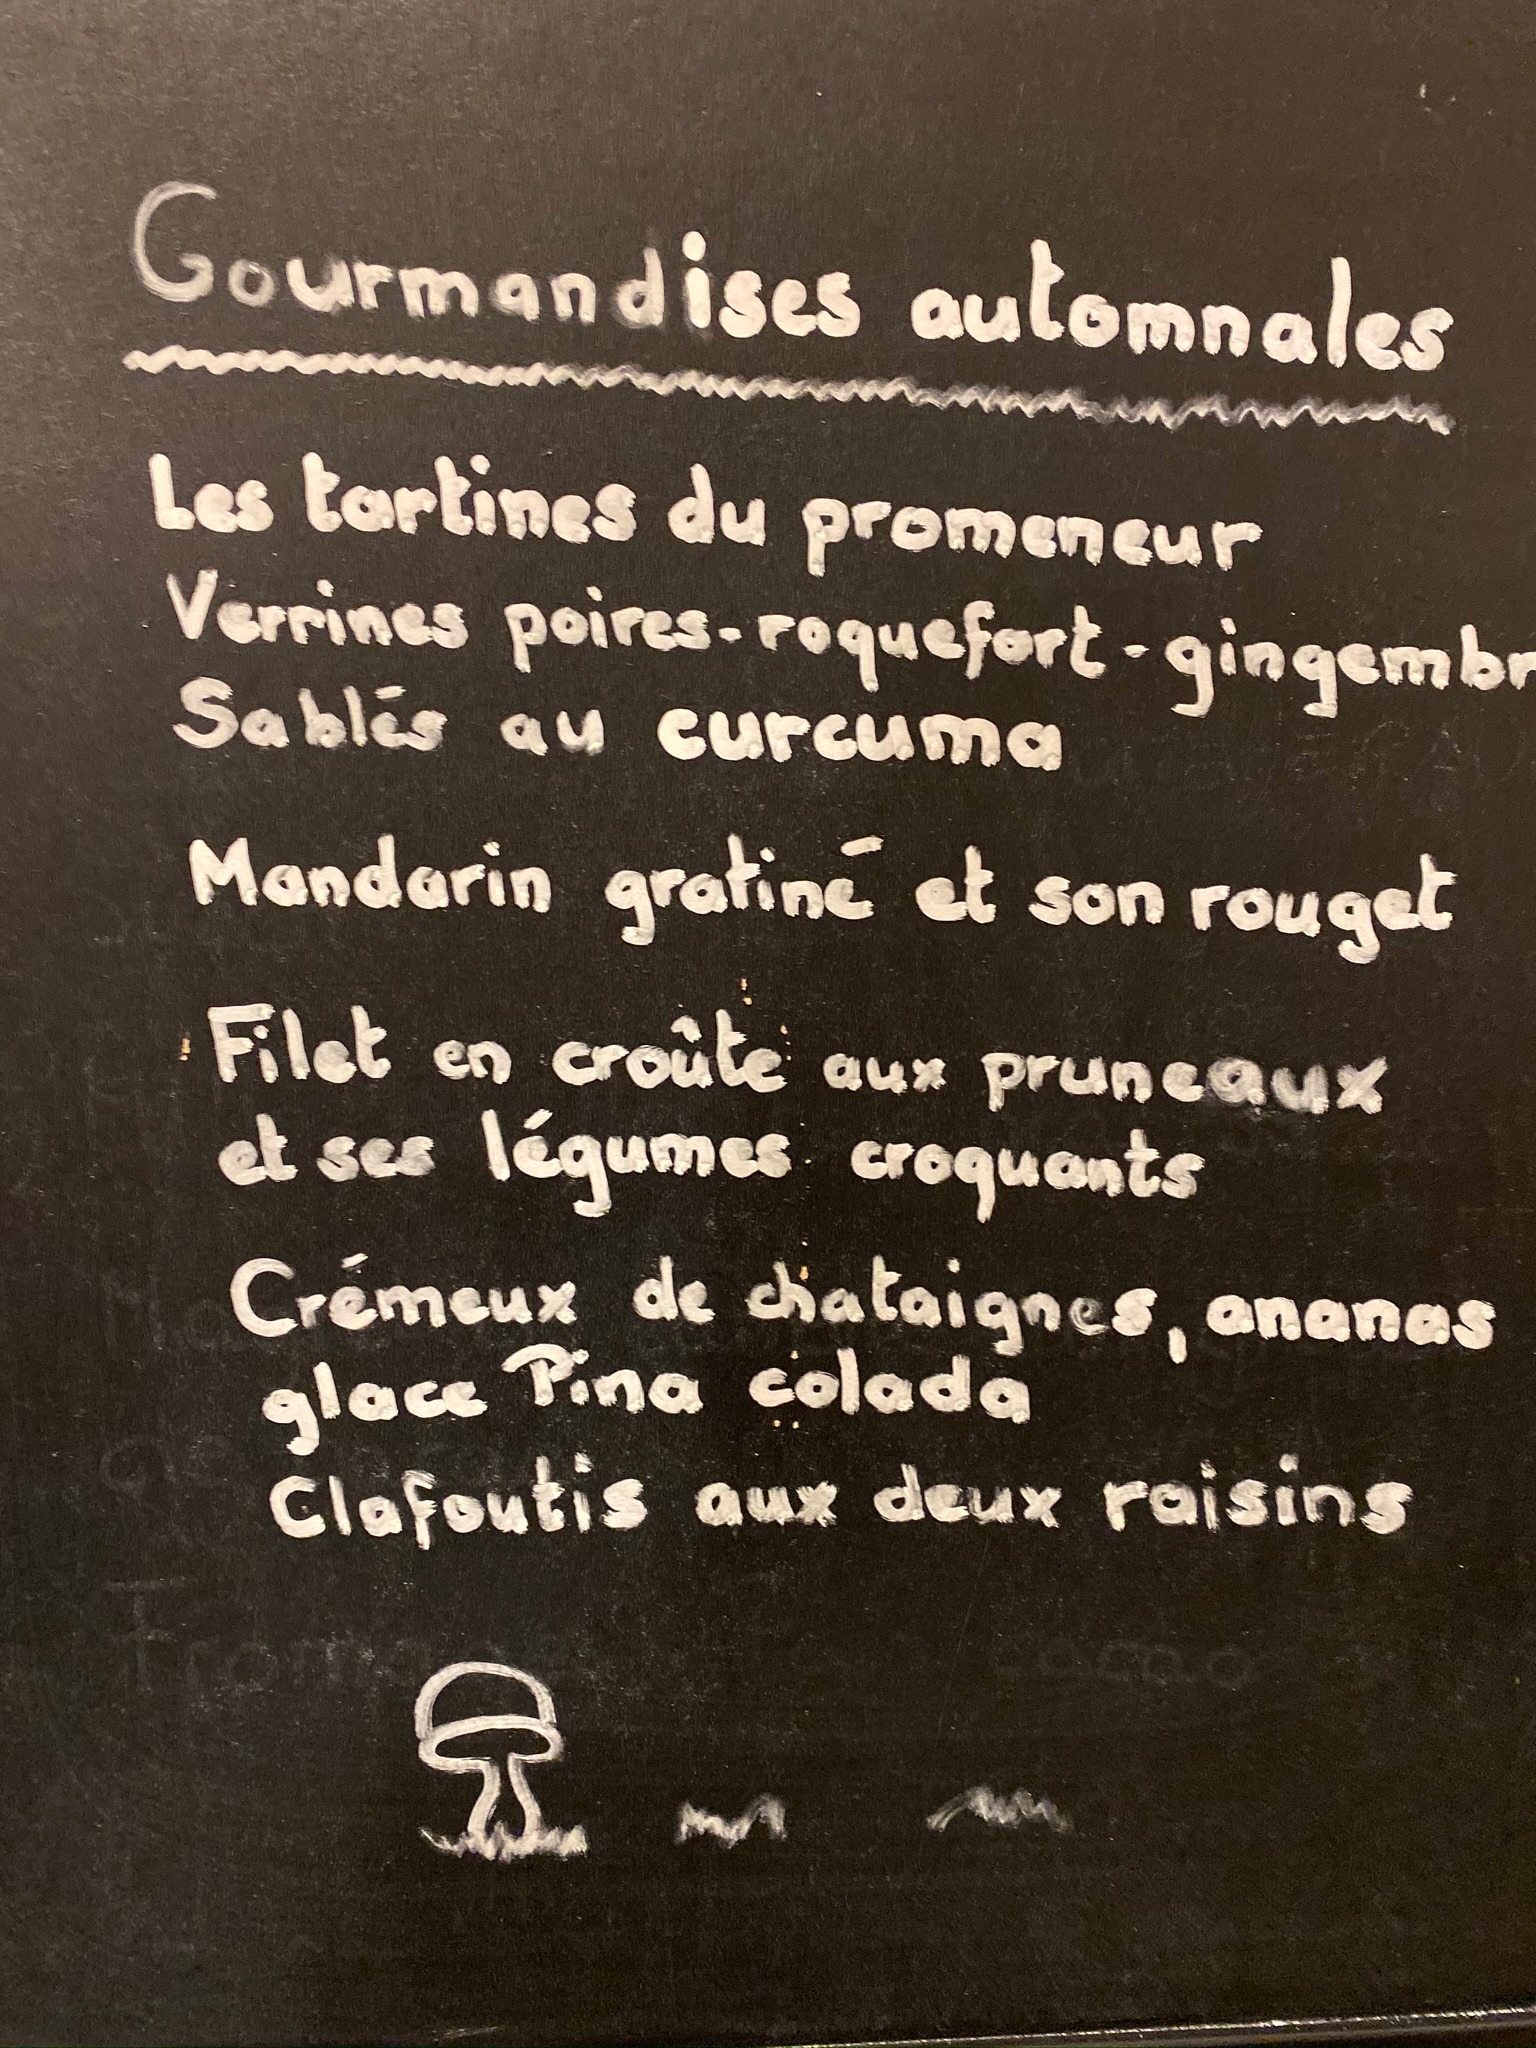 Gourmandises automnales
Les tartines du promeneur
Verrines poires-roquefort-gingembr
Sablés au curcuma
Mandarin gratiné et son rouget
Filet en croûte aux pruneaux
et ses légumes croquants
Crémeux de chataignes, ananas
glace Pina colada
Clafoutis aux deux raisins